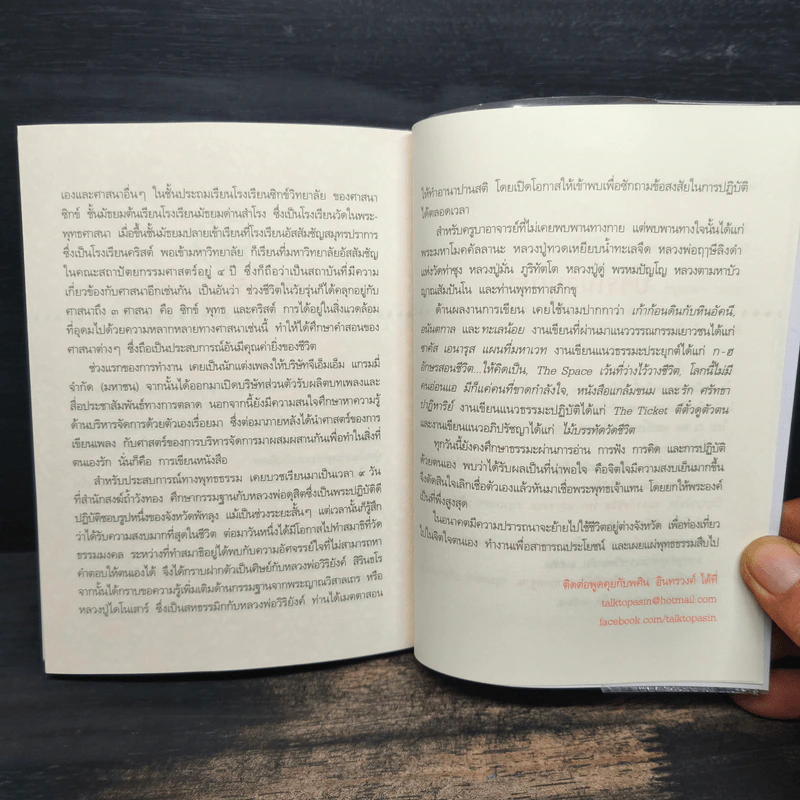 เองและศาสนาอื่นๆ ในชั้นประถมเรียนโรงเรียนซิกข์วิทยาลัย ของศาสนา
ซิกข์ ชั้นมัธยมต้นเรียนโรงเรียนมัธยมด่านสำโรง ซึ่งเป็นโรงเรียนวัดในพระ-
พุทธศาสนา เมื่อขึ้นชั้นมัธยมปลายเข้าเรียนที่โรงเรียนอัสสัมชัญสมุทรปราการ
ซึ่งเป็นโรงเรียนคริสต์ พอเข้ามหาวิทยาลัย ก็เรียนที่มหาวิทยาลัยอัสสัมชัญ
ในคณะสถาปัตยกรรมศาสตร์อยู่ ๔ ปี ซึ่งก็ถือว่าเป็นสถาบันที่มีความ
เกี่ยวข้องกับศาสนาอีกเช่นกัน เป็นอันว่า ช่วงชีวิตในวัยรุ่นก็ได้คลุกอยู่กับ
ศาสนาถึง ๓ ศาสนา คือ ซิกข์ พุทธ และคริสต์ การได้อยู่ในสิ่งแวดล้อม
ที่อุดมไปด้วยความหลากหลายทางศาสนาเช่นนี้ ทำให้ได้ศึกษาคำสอนของ
ศาสนาต่างๆ ซึ่งถือเป็นประสบการณ์อันมีคุณค่ายิ่งของชีวิต
ช่วงแรกของการทำงาน เคยเป็นนักแต่งเพลงให้บริษัทจีเอ็มเอ็ม แกรมมี่
จำกัด (มหาชน) จากนั้นได้ออกมาเปิดบริษัทส่วนตัวรับผลิตบทเพลงและ
สื่อประชาสัมพันธ์ทางการตลาด นอกจากนี้ยังมีความสนใจศึกษาหาความรู้
ด้านบริหารจัดการด้วยตัวเองเรื่อยมา ซึ่งต่อมาภายหลังได้นำศาสตร์ของการ
เขียนเพลง กับศาสตร์ของการบริหารจัดการมาผสมผสานกันเพื่อทำในสิ่งที่
ตนเองรัก นั่นก็คือ การเขียนหนังสือ
สำหรับประสบการณ์ทางพุทธธรรม เคยบวชเรียนมาเป็นเวลา ๙ วัน
ที่สำนักสงฆ์ถ้ำวังทอง ศึกษากรรมฐานกับหลวงพ่อดุสิตซึ่งเป็นพระปฏิบัติดี
ปฏิบัติชอบรูปหนึ่งของจังหวัดพัทลุง แม้เป็นช่วงระยะสั้นๆ แต่เวลานั้นก็รู้สึก
ว่าได้รับความสงบมากที่สุดในชีวิต ต่อมาวันหนึ่งได้มีโอกาสไปทำสมาธิที่วัด
ธรรมมงคล ระหว่างที่ทำสมาธิอยู่ได้พบกับความอัศจรรย์ใจที่ไม่สามารถหา
คำตอบให้ตนเองได้ จึงได้กราบฝากตัวเป็นศิษย์กับหลวงพ่อวิริยังค์ สิรินธโร
จากนั้นได้กราบขอความรู้เพิ่มเติมด้านกรรมฐานจากพระญาณวิศาลเถร หรือ
หลวงปู่ไดโนเสาร์ ซึ่งเป็นสหธรรมิกกับหลวงพ่อวิริยังค์ ท่านได้เมตตาสอน
ให้ทำอานาปานสติ โดยเปิดโอกาสให้เข้าพบเพื่อซักถามข้อสงสัยในการปฏิบัติ
ได้ตลอดเวลา
สำหรับครูบาอาจารย์ที่ไม่เคยพบพานทางกาย แต่พบพานทางใจนั้นได้แก่
พระมหาโมคคัลลานะ หลวงปู่ทวดเหยียบน้ำทะเลจืด หลวงพ่อฤๅษีลิงดำ
แห่งวัดท่าซุง หลวงปู่มั่น ภูริทัตโต หลวงปู่ดู่ พรหมปัญโญ หลวงตามหาบัว
ญาณสัมปันโน และท่านพุทธทาสภิกขุ
ด้านผลงานการเขียน เคยใช้นามปากกาว่า เก้าก้อนดินกับทินอัคนี,
อนันตกาล และทะเลน้อย งานเขียนที่ผ่านมาแนววรรณกรรมเยาวชนได้แก่
ชาคัส เอนารุส แผนที่มหาเวท งานเขียนแนวธรรมะประยุกต์ได้แก่ ก-ฮ
อักษรสอนชีวิต...ให้คิดเป็น, The Space เว้นที่ว่างไว้วางชีวิต, โลกนี้ไม่มี
คนอ่อนแอ มีก็แค่คนที่ขาดกำลังใจ, หนังสือแกล้มขนม และรัก ศรัทธา
ปาฏิหาริย์ งานเขียนแนวธรรมะปฏิบัติได้แก่ The Ticket ตีตั๋วดูตัวตน
และงานเขียนแนวอภิปรัชญาได้แก่ ไม้บรรทัดวัดชีวิต
ทุกวันนี้ยังคงศึกษาธรรมะผ่านการอ่าน การฟัง การคิด และการปฏิบัติ
ด้วยตนเอง พบว่าได้รับผลเป็นที่น่าพอใจ คือจิตใจมีความสงบเย็นมากขึ้น
จึงตัดสินใจเลิกเชื่อตัวเองแล้วหันมาเชื่อพระพุทธเจ้าแทน โดยยกให้พระองค์
เป็นที่พึ่งสูงสุด
ในอนาคตมีความปรารถนาจะย้ายไปใช้ชีวิตอยู่ต่างจังหวัด เพื่อท่องเที่ยว
ไปในจิตใจตนเอง ทำงานเพื่อสาธารณประโยชน์ และเผยแผ่พุทธธรรมสืบไป
ติดต่อพูดคุยกับพศิน อินทรวงค์ ได้ที่
talktopasin@hotmail.com
facebook.com/talktopasin